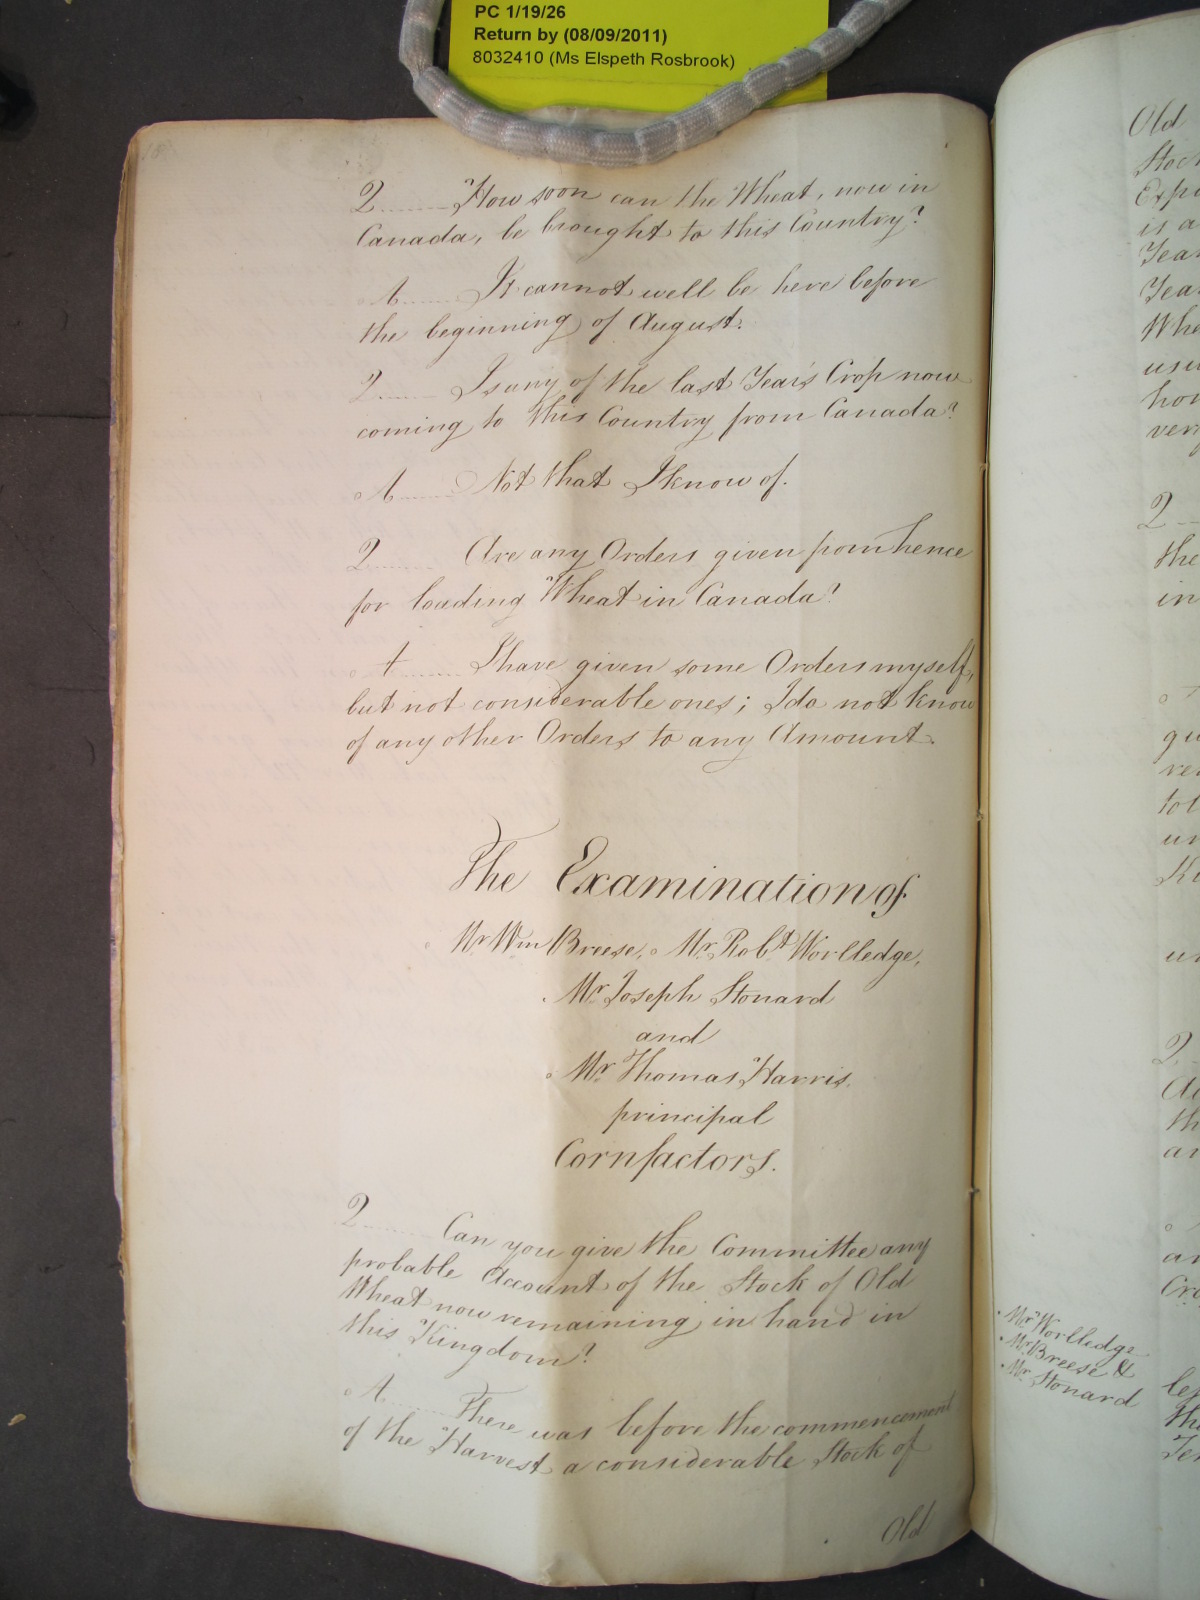 PC 1/19/26
Return by (08/09/2011)
8032410 (Ms Elspeth Rosbrook)
Q How soon can the Wheat, now in
Canada, be brought to this Country?
A It cannot well be here before
the beginning of August.
Q Is any of the last Year's Crop now
coming to this Country from Canada?
A Not that I know of.
Q Are any Orders given from hence
for loading Wheat in Canada?
A I have given some Orders myself,
but not considerable ones; I do not know
of any other Orders to any Amount.
The Examination of
Mr Wm Breese, Mr Robt Worlledge,
Mr Joseph Stonard
and
Mr Thomas Harris
principal
Cornfactors.
Q Can you give the Committee any
probable Account of the Stock of Old
Wheat now remaining in hand in
this Kingdom?
A There was before the commencement
of the Harvest a considerable Stock of
Old
Old
is a
Q
the
in
Q
Mr Worlledge
Mr Breese &
Mr Stonard